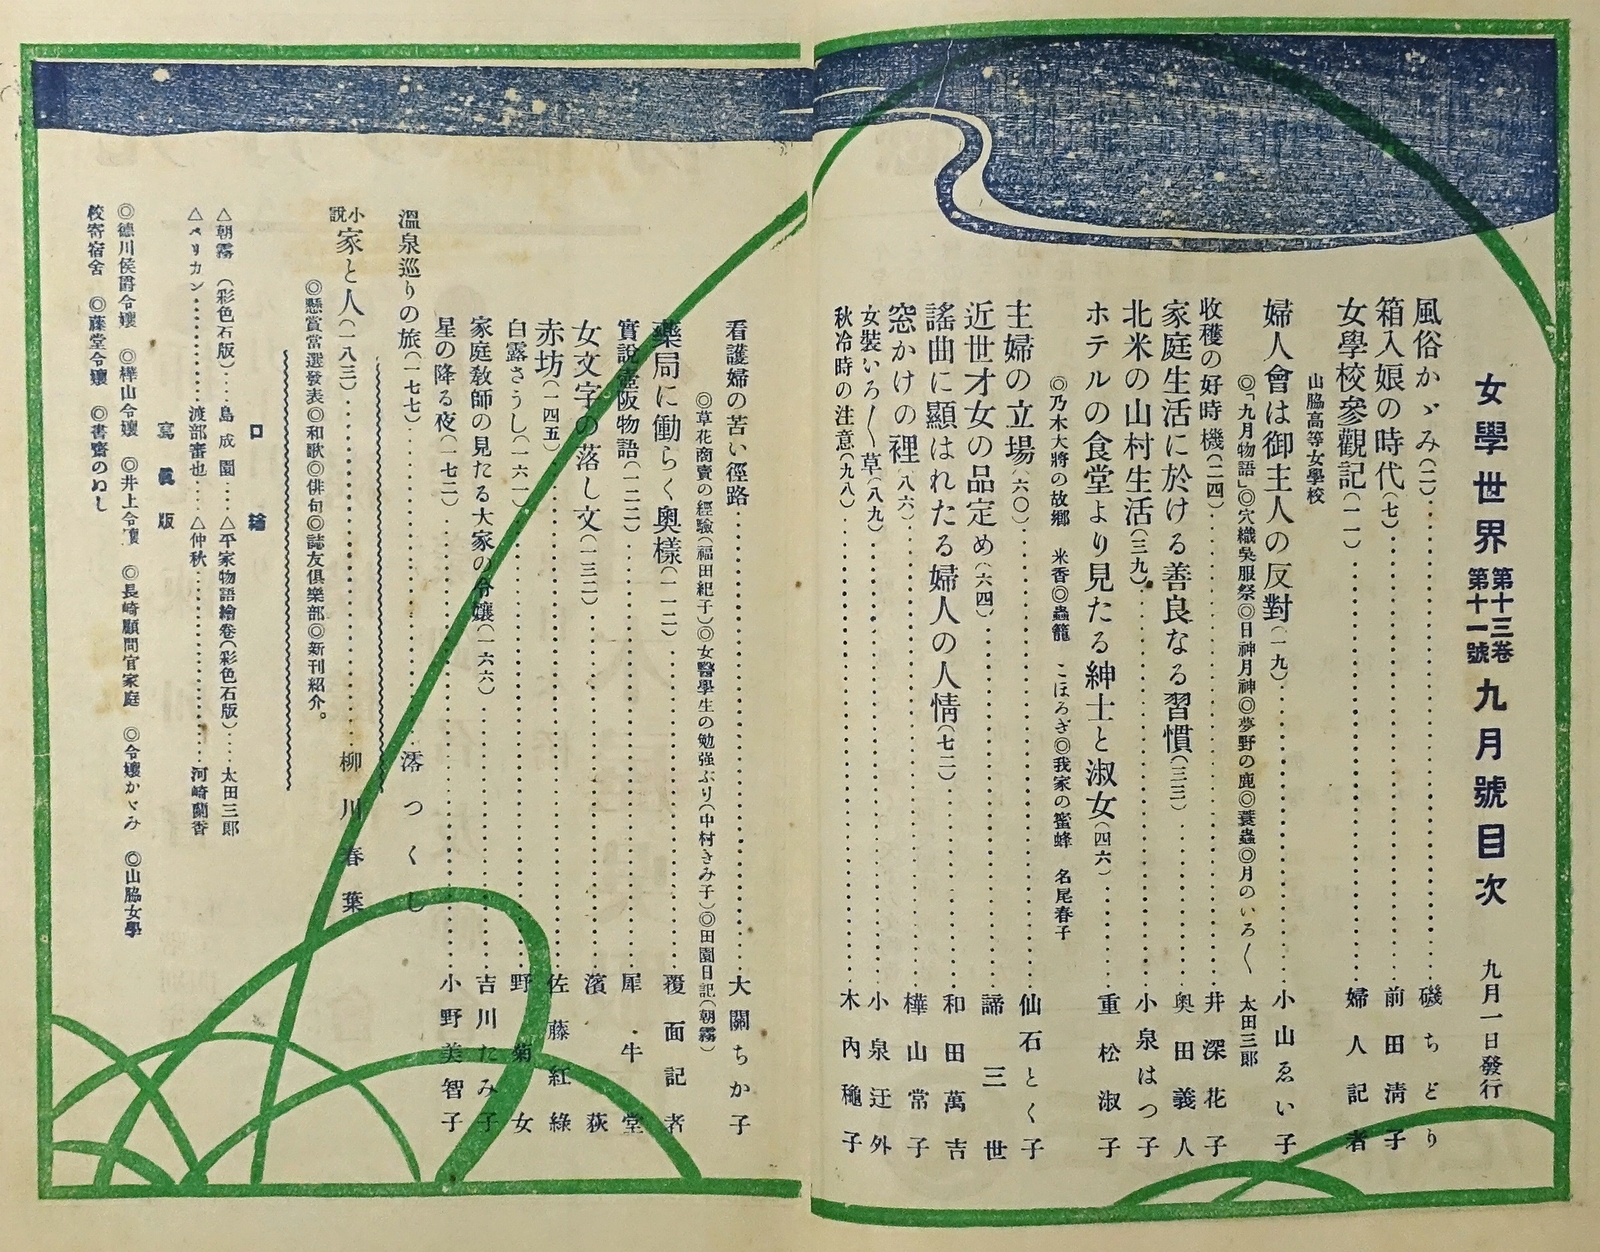 女學世界 第十三卷第十一號 九月號目次 九月一日發行
風俗かゞみ(二)‥‥磯ちどり
箱入娘の時代(七)‥‥前田淸子
女學校參觀記(一一)‥‥婦人記者
山脇高等女學校
婦人會は御主人の反對(一九)‥‥小山ゑい子
◎「九月物語」◎穴織吳服祭◎日神月神◎夢野の鹿◎蓑蟲◎月のいろ〱 太田三郞
收穫の好時機(二四)‥‥井深花子
家庭生活に於ける善良なる習慣(三三)‥‥奧田義人
北米の山村生活(三九)‥‥小泉はつ子
ホテルの食堂より見たる紳士と淑女(四六)‥‥重松淑子
◎乃木大將の故鄕 米香◎蟲籠 こほろぎ◎我家の蜜蜂 名尾春子
主婦の立場(六〇)‥‥仙石とく子
近世才女の品定め(六四)‥‥諦三世
謠曲に顯はれたる婦人の人情(七二)‥‥和田萬吉
窓かけの裡(八六)‥‥樺山常子
女裝いろ〱草(八九)‥‥小泉迂外
秋冷時の注意(九八)‥‥木內穐子
看護婦の苦い徑路‥‥大關ちか子
◎草花商賣の經驗(福田紀子)◎女醫學生の勉强ぶり(中村きみ子)◎田園日記(朝霧)
藥局に働らく奧樣(一一二)‥‥覆面記者
實說壺阪物語(一二二)‥‥犀牛堂
女文字の落し文(一三二)‥‥濱荻
赤坊(一四五)‥‥佐藤紅綠
白露さうし(一六一)‥‥野菊女
家庭敎師の見たる大家の令孃(一六六)‥‥吉川たみ子
星の降る夜(一七二)‥‥小野美智子
溫泉巡りの旅(一七七)‥‥澪つくし
小說 家と人(一八三)‥‥柳川春葉
◎懸賞當選發表◎和歌◎俳句◎誌友俱樂部◎新刊紹介。
口繪
△朝霧 (彩色石版)‥‥島成園‥‥△平家物語繪卷(彩色石版)‥‥太田三郞
△ペリカン‥‥渡部審也‥‥△仲秋‥‥河崎蘭香
寫眞版
◎德川侯爵令孃 ◎樺山令孃 ◎井上令孃 ◎長崎顧問官家庭 ◎令孃かゞみ ◎山脇女學
校寄宿舍 ◎藤堂令孃 ◎書齋のぬし